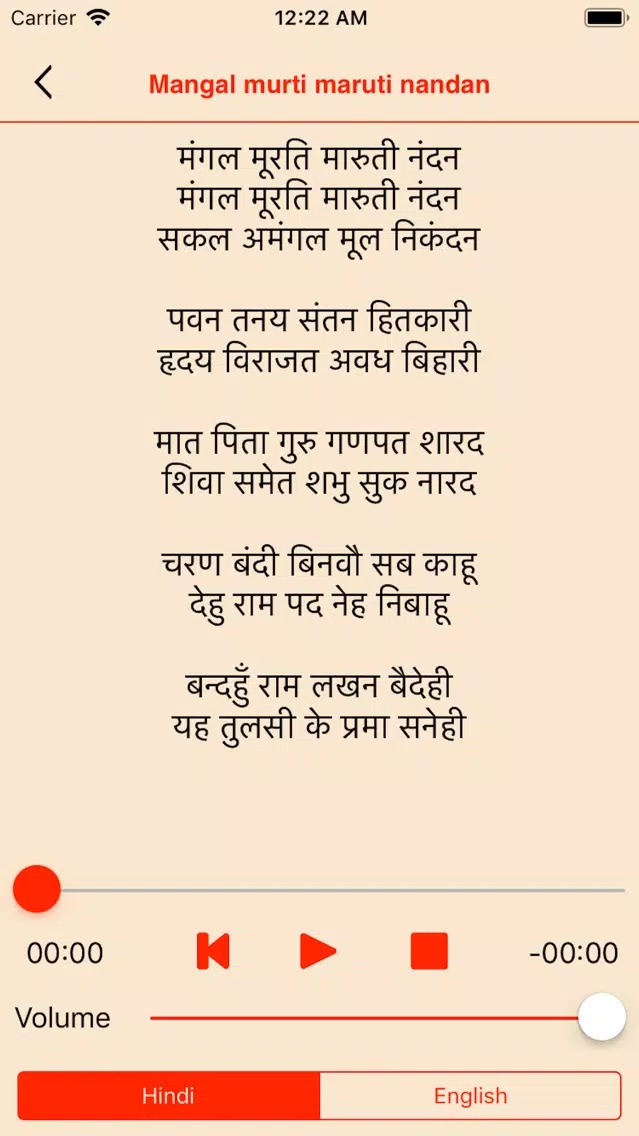 Carrier 12:22 AM
Mangal murti maruti nandan
मंगल मूरति मारुती नंदन
मंगल मूरति मारुती नंदन
सकल अमंगल मूल निकंदन
पवन तनय संतन हितकारी
हृदय विराजत अवध बिहारी
मात पिता गुरु गणपत शारद
शिवा समेत शभु सुक नारद
चरण बंदी बिनवौ सब काहू
देहु राम पद नेह निबाहू
बन्दहुँ राम लखन बैदेही
यह तुलसी के प्रमा सनेही
00:00 -00:00
Volume
Hindi English